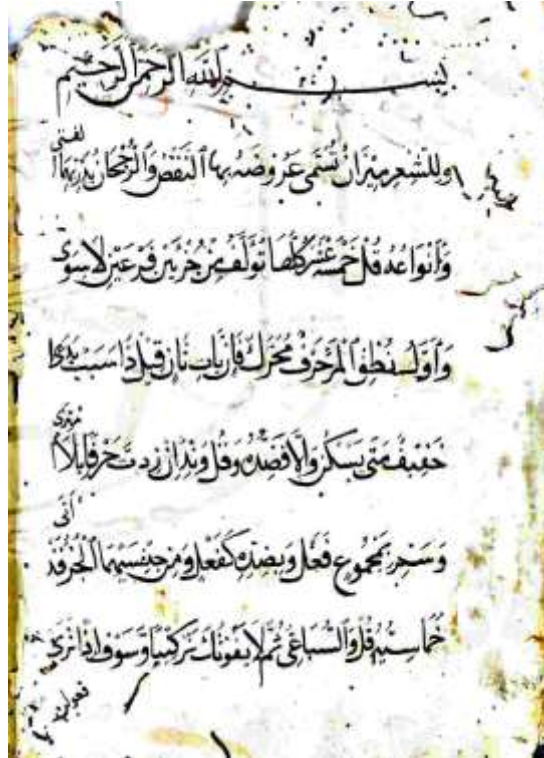 بسم الله الرحمن الرحيم
وَلِلشِّعْرِ مِيْزَانٌ تُسَمَّى عَرُوضَهُ بِهَا النَّقْصُ وَالرُّجْحَانُ يَدْرِيهِمَا الفتى
وَأَنْوَاعُهُ قُلْ خَمْسَةَ عَشْرَ كُلُّهَا تُؤَلَّفُ مِنْ جُزْئَيْنِ فَرْعَيْنِ لَا سِوَى
وَأَوَّلُ نُطْقِ الْمَرْءِ حَرْفٌ مُحَرَّكٌ فَإِنْ يَأْتِ ثَانٍ قِيْلَ ذَا سَبَبٌ بَدَا
خَفِيفٌ مَتَى يَسْكُنْ وَإِلَّا فَضِدُّهُ وَقُلْ وَتِدٌ إِنْ زِدْتَ حَرْفًا بِلَا امترى
وَسَمِّ بِمَجْمُوعٍ فَعَلْ وَبِضِدِّهِ كَفَعْلٍ وَمِنْ جِنْسَيْهِمَا الْجُزْءُ قَدْ أتى
خُمَاسِيُّهُ قُلْ وَالسُّبَاعِيُّ ثُمَّ لَا يَفُوتُكَ تَرْكِيبًا وَسَوْفَ إِذًا تَرَى
فعولن